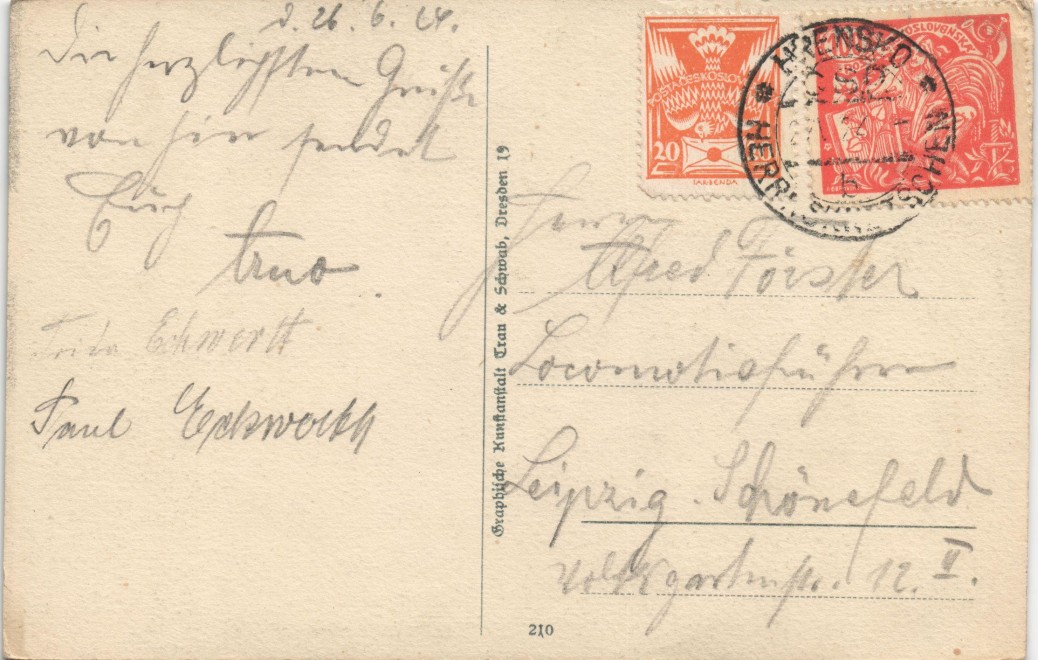 d. 26. 6. 24.
Die herzlichsten Grüße
von hier sendet
Euch
Erno.
Frida Eckwerth
Paul Eckwerth
Graphische Kunstanstalt Trau & Schwab, Dresden 19
POSTA ČESKOSLOV
20
HŘENSKO
HERRNSKRETSCHEN
Herrn
Alfred Förster
Locomotivführer
Leipzig. Schönefeld
Volkgartenstr. 12. II.
210